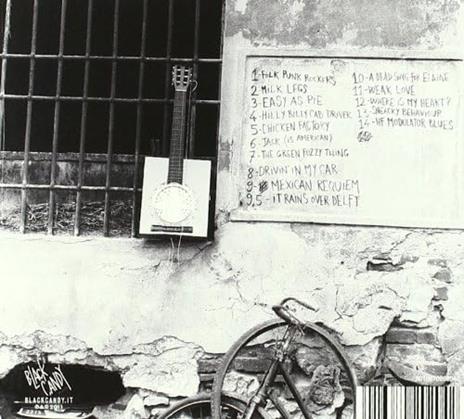 1- FOLK PUNK ROCKERS
2 MILK LEGS
3- EASY AS PIE
4- HILLY BILLY CAB DRIVER
5- CHICKEN FACTORY
6- JACK (IS AMERICAN)
7- THE GREEN FUZZY THING
8- DRIVIN' IN MY CAR
9- MEXICAN REQUIEM
9,5- IT RAINS OVER DELFT
10- A DEAD SONG FOR ELAINE
11- WEAK LOVE
12- WHERE IS MY HEART?
13- SNEAKY BEHAVIOUR
14- NF MODULATOR BLUES
BLACK
CANDY
BLACKCANDY.IT
2011